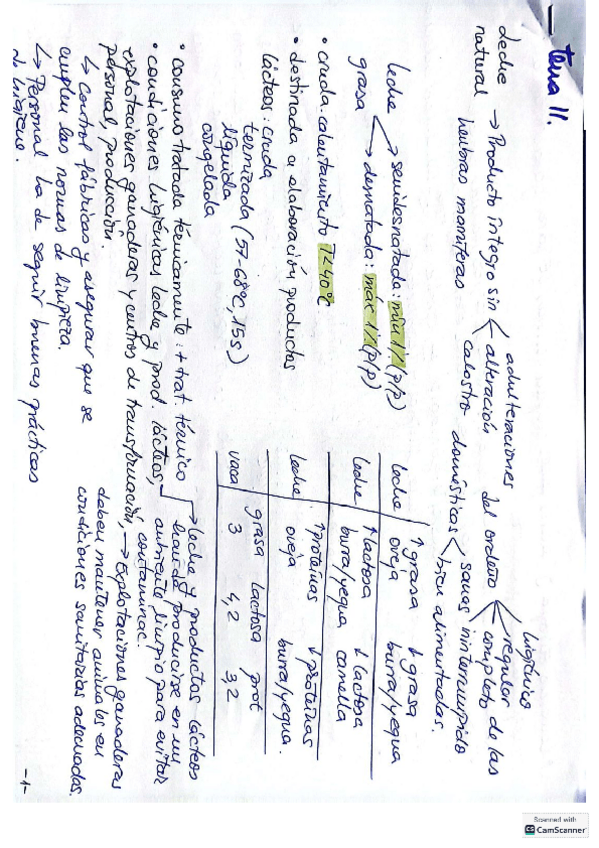 — tema 11.
Leche natural → Producto íntegro sin < adulteraciones / alteración / calostro del ordeño < higiénico / regular / completo de las
hembras mamíferas domésticas < sanas ininterrumpido / bien alimentadas.
leche → semidesnatada: mín 1% (p/p)
grasa → desnatada: máx 1% (p/p)
• cruda. calentamiento T<40°C
• destinada a elaboración productos
lácteos: cruda
termizada (57-68°C, 15s)
líquida
congelada
leche ↑ grasa ↓ grasa
oveja burra/yegua
leche ↑ lactosa ↓ lactosa
burra/yegua camella
leche ↑ proteínas ↓ proteínas
oveja burra/yegua.
grasa lactosa prot
vaca 3 4,2 3,2
• consumo tratada térmicamente: + trat. térmico
• condiciones higiénicas leche y prod. lácteos,
explotaciones ganaderas y centros de transformación,
personal, producción.
→ leche y productos lácteos
han de producirse en un
ambiente limpio para evitar
contaminac.
→ Explotaciones ganaderas
deben mantener animales en
condiciones sanitarias adecuadas.
↳ Control fábricas y asegurar que se
cumplen las normas de limpieza.
↳ Personal ha de seguir buenas prácticas
de higiene.
-1-
Scanned with
CS CamScanner